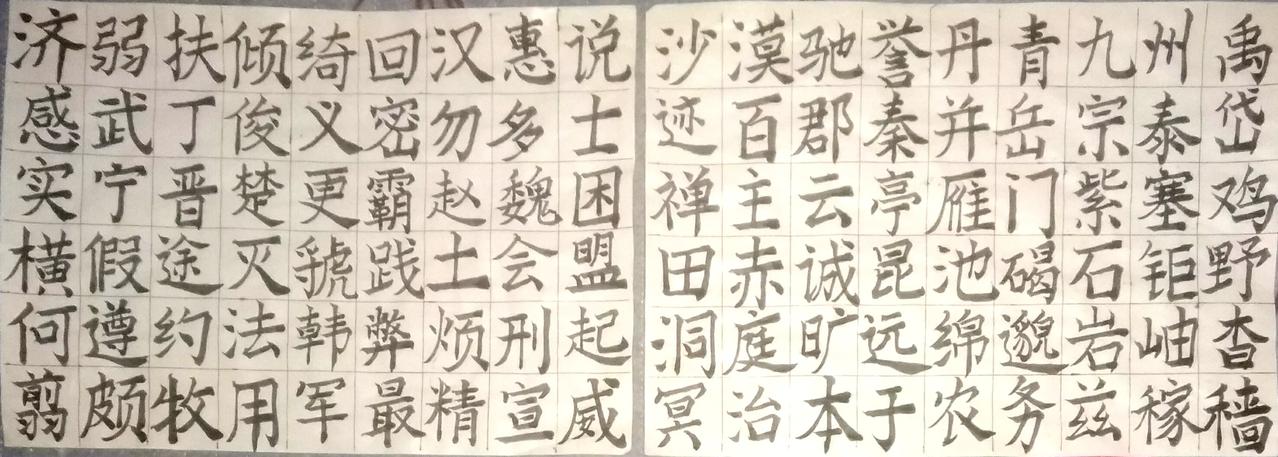 济弱扶倾绮回汉惠说
感武丁俊义密勿多士
实宁晋楚更霸赵魏困
横假途灭虢践土会盟
何遵约法韩弊烦刑起
翦颇牧用军最精宣威
沙漠驰誉丹青九州禹
迹百郡秦并岳宗泰岱
禅主云亭雁门紫塞鸡
田赤诚昆池碣石钜野
洞庭旷远绵邈岩岫杳
冥治本于农务兹稼穑